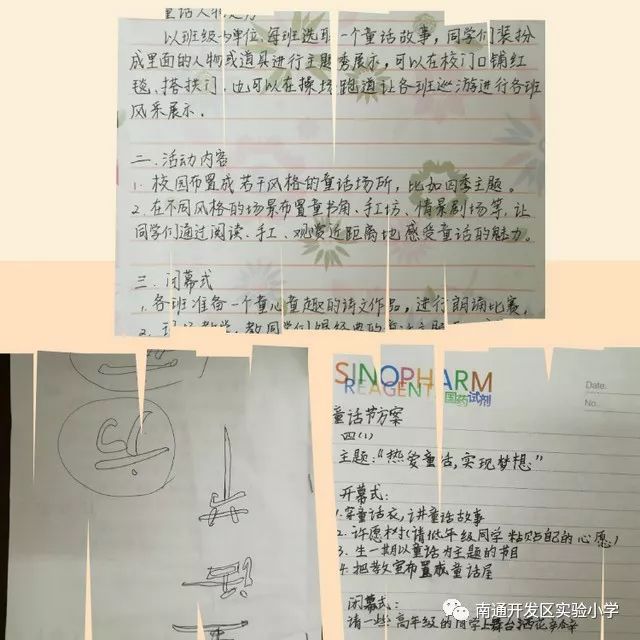 童话人物走秀
以班级为单位,每班选取一个童话故事,同学们装扮
成里面的人物或道具进行主题秀展示,可以在校门口铺红
毯、搭拱门.也可以在操场跑道让各班巡游进行各班
风采展示.
二.活动内容
1.校园布置成若干风格的童话场所,比如四季主题。
2.在不同风格的场景布置童书角、手工坊、情景剧场等,让
同学们通过阅读、手工、观赏近距离地感受童话的魅力。
三.闭幕式
1.各班准备一个童心童趣的诗文作品,进行朗诵比赛.
SINOPHARM
REAGENT 国药试剂
Date.
No.
童话节方案
四(1)
主题:"热爱童话,实现梦想"
开幕式:
1.穿童话衣,讲童话故事
2.许愿树(请低年级同学粘贴自己的心愿)
3.生一期以童话为主题的书目
4.把教室布置成童话屋
闭幕式:
请一些高年级的同学上舞台
南通开发区实验小学